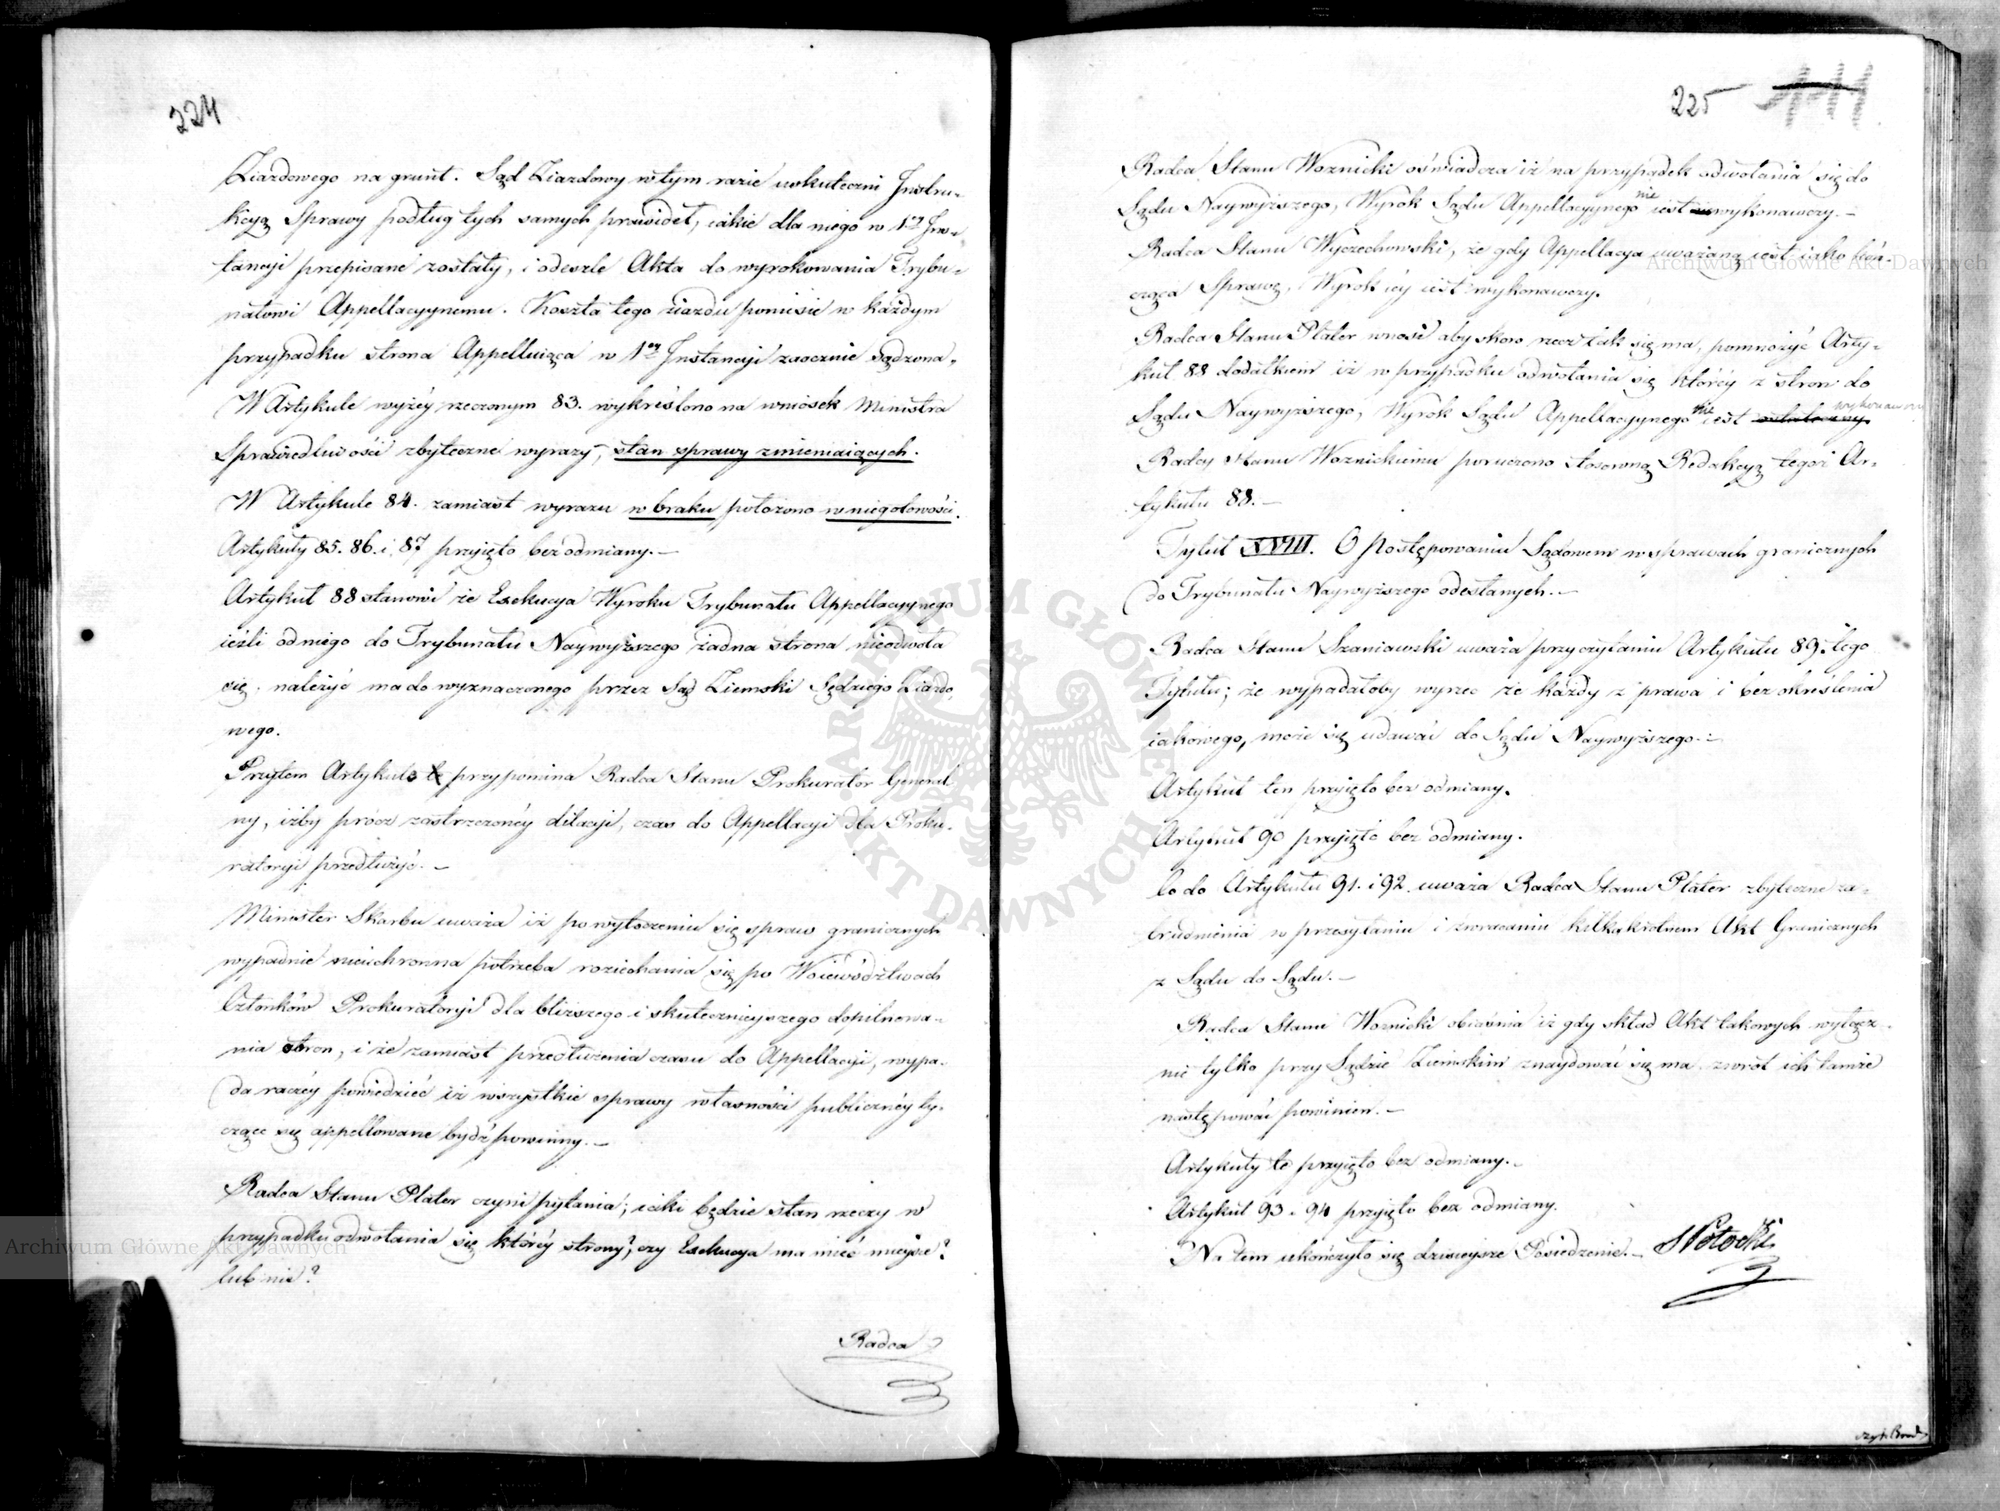 224
Ziazdowego na grunt. Sąd Ziazdowy w tym razie uskuteczni Instru-
kcyą Sprawy podług tych samych prawideł, iakie dla niego w 1ey Ins-
tancyi przepisane zostały, i odeszle Akta do wyrokowania Trybu-
nałowi Appellacyynemu. Koszta tego ziazdu poniesie w każdym
przypadku strona Appelluiąca w 1ey Instancyi zaocznie sądzona.
W Artykule wyżéy rzeczonym 83. wykreślono na wniosek Ministra
Sprawiedliwości zbyteczne wyrazy, stan sprawy zmieniaiących.
W Artykule 84. zamiast wyrazu w braku położono w niegotowości.
Artykuły 85. 86. i 87 przyięto bez odmiany. —
Artykuł 88 stanowi że Exekucya Wyroku Trybunału Appellacyynego
ieśli od niego do Trybunału Naywyższego żadna strona nieodwoła
się, należyć ma do wyznaczonego przez Sąd Ziemski Sędziego Ziazdo
wego.
Przytem Artykule przypomina Radca Stanu Prokurator General
ny, iżby prócz zastrzeżonéy dilacyi, czas do Appellacyi dla Proku-
ratoryi przedłużyć. —
Minister Skarbu uważa iż po wytoczeniu się spraw granicznych
wypadnie nieuchronna potrzeba roziechania się po Woiewództwach
Członków Prokuratoryi dla bliższego i skutecznieyszego dopilnowa-
nia stron, i że zamiast przedłużenia czasu do Appellacyi, wypa-
da raczéy powiedzieć iż wszystkie sprawy własności publicznéy ty-
czące się appellowane bydź powinny. —
Radca Stanu Plater czyni pytania; iaki będzie stan rzeczy w
przypadku odwołania się któréy strony?, czy Exekucya ma mieć mieysce?
lub nie?
Radca
225 111
Radca Stanu Woznicki oświadcza iż na przypadek odwołania się do
Sądu Naywyższego, Wyrok Sądu Appellacyynego nie iest wykonawczy. —
Radca Stanu Wyczechowski, że gdy Appellacya uważaną iest iako koń-
cząca Sprawę, Wyrok iéy iest wykonawczy.
Radca Stanu Plater wnosi aby skoro rzecz tak się ma, pomnożyć Arty-
kuł 88 dodatkiem iż w przypadku odwołania się któréy z stron do
Sądu Naywyższego, Wyrok Sądu Appellacyynego nie iest ostateczny wykonawczy
Radcy Stanu Woznickiemu poruczono stosowną Redakcyą tegoż Ar-
tykułu 88. —
Tytuł XVIII. O Postępowaniu Sądowem w sprawach granicznych
do Trybunału Naywyższego odesłanych. —
Radca Stanu Szaniawski uważa przy czytaniu Artykułu 89. tego
Tytułu; że wypadałoby wyrzec że każdy z prawa i bez określenia
iakowego, może się udawać do Sądu Naywyższego. —
Artykuł ten przyięto bez odmiany.
Artykuł 90 przyięto bez odmiany.
Co do Artykułu 91. i 92. uważa Radca Stanu Plater zbyteczne za-
trudnienia w przesyłaniu i zwracaniu kilkakrotnem Akt Granicznych
z Sądu do Sądu. —
Radca Stanu Woznicki obiaśnia iż gdy skład Akt takowych wyłącz-
nie tylko przy Sądzie Ziemskim znaydować się ma, zwrot ich tamże
następować powinien. —
Artykuły te przyięto bez odmiany. —
Artykuł 93. 94 przyięto bez odmiany.
Na tem ukończyło się dzisieysze Posiedzenie. — S Potocki
Archiwum Główne Akt Dawnych
Archiwum Główne Akt Dawnych
ARCHIWUM GŁÓWNE AKT DAWNYCH